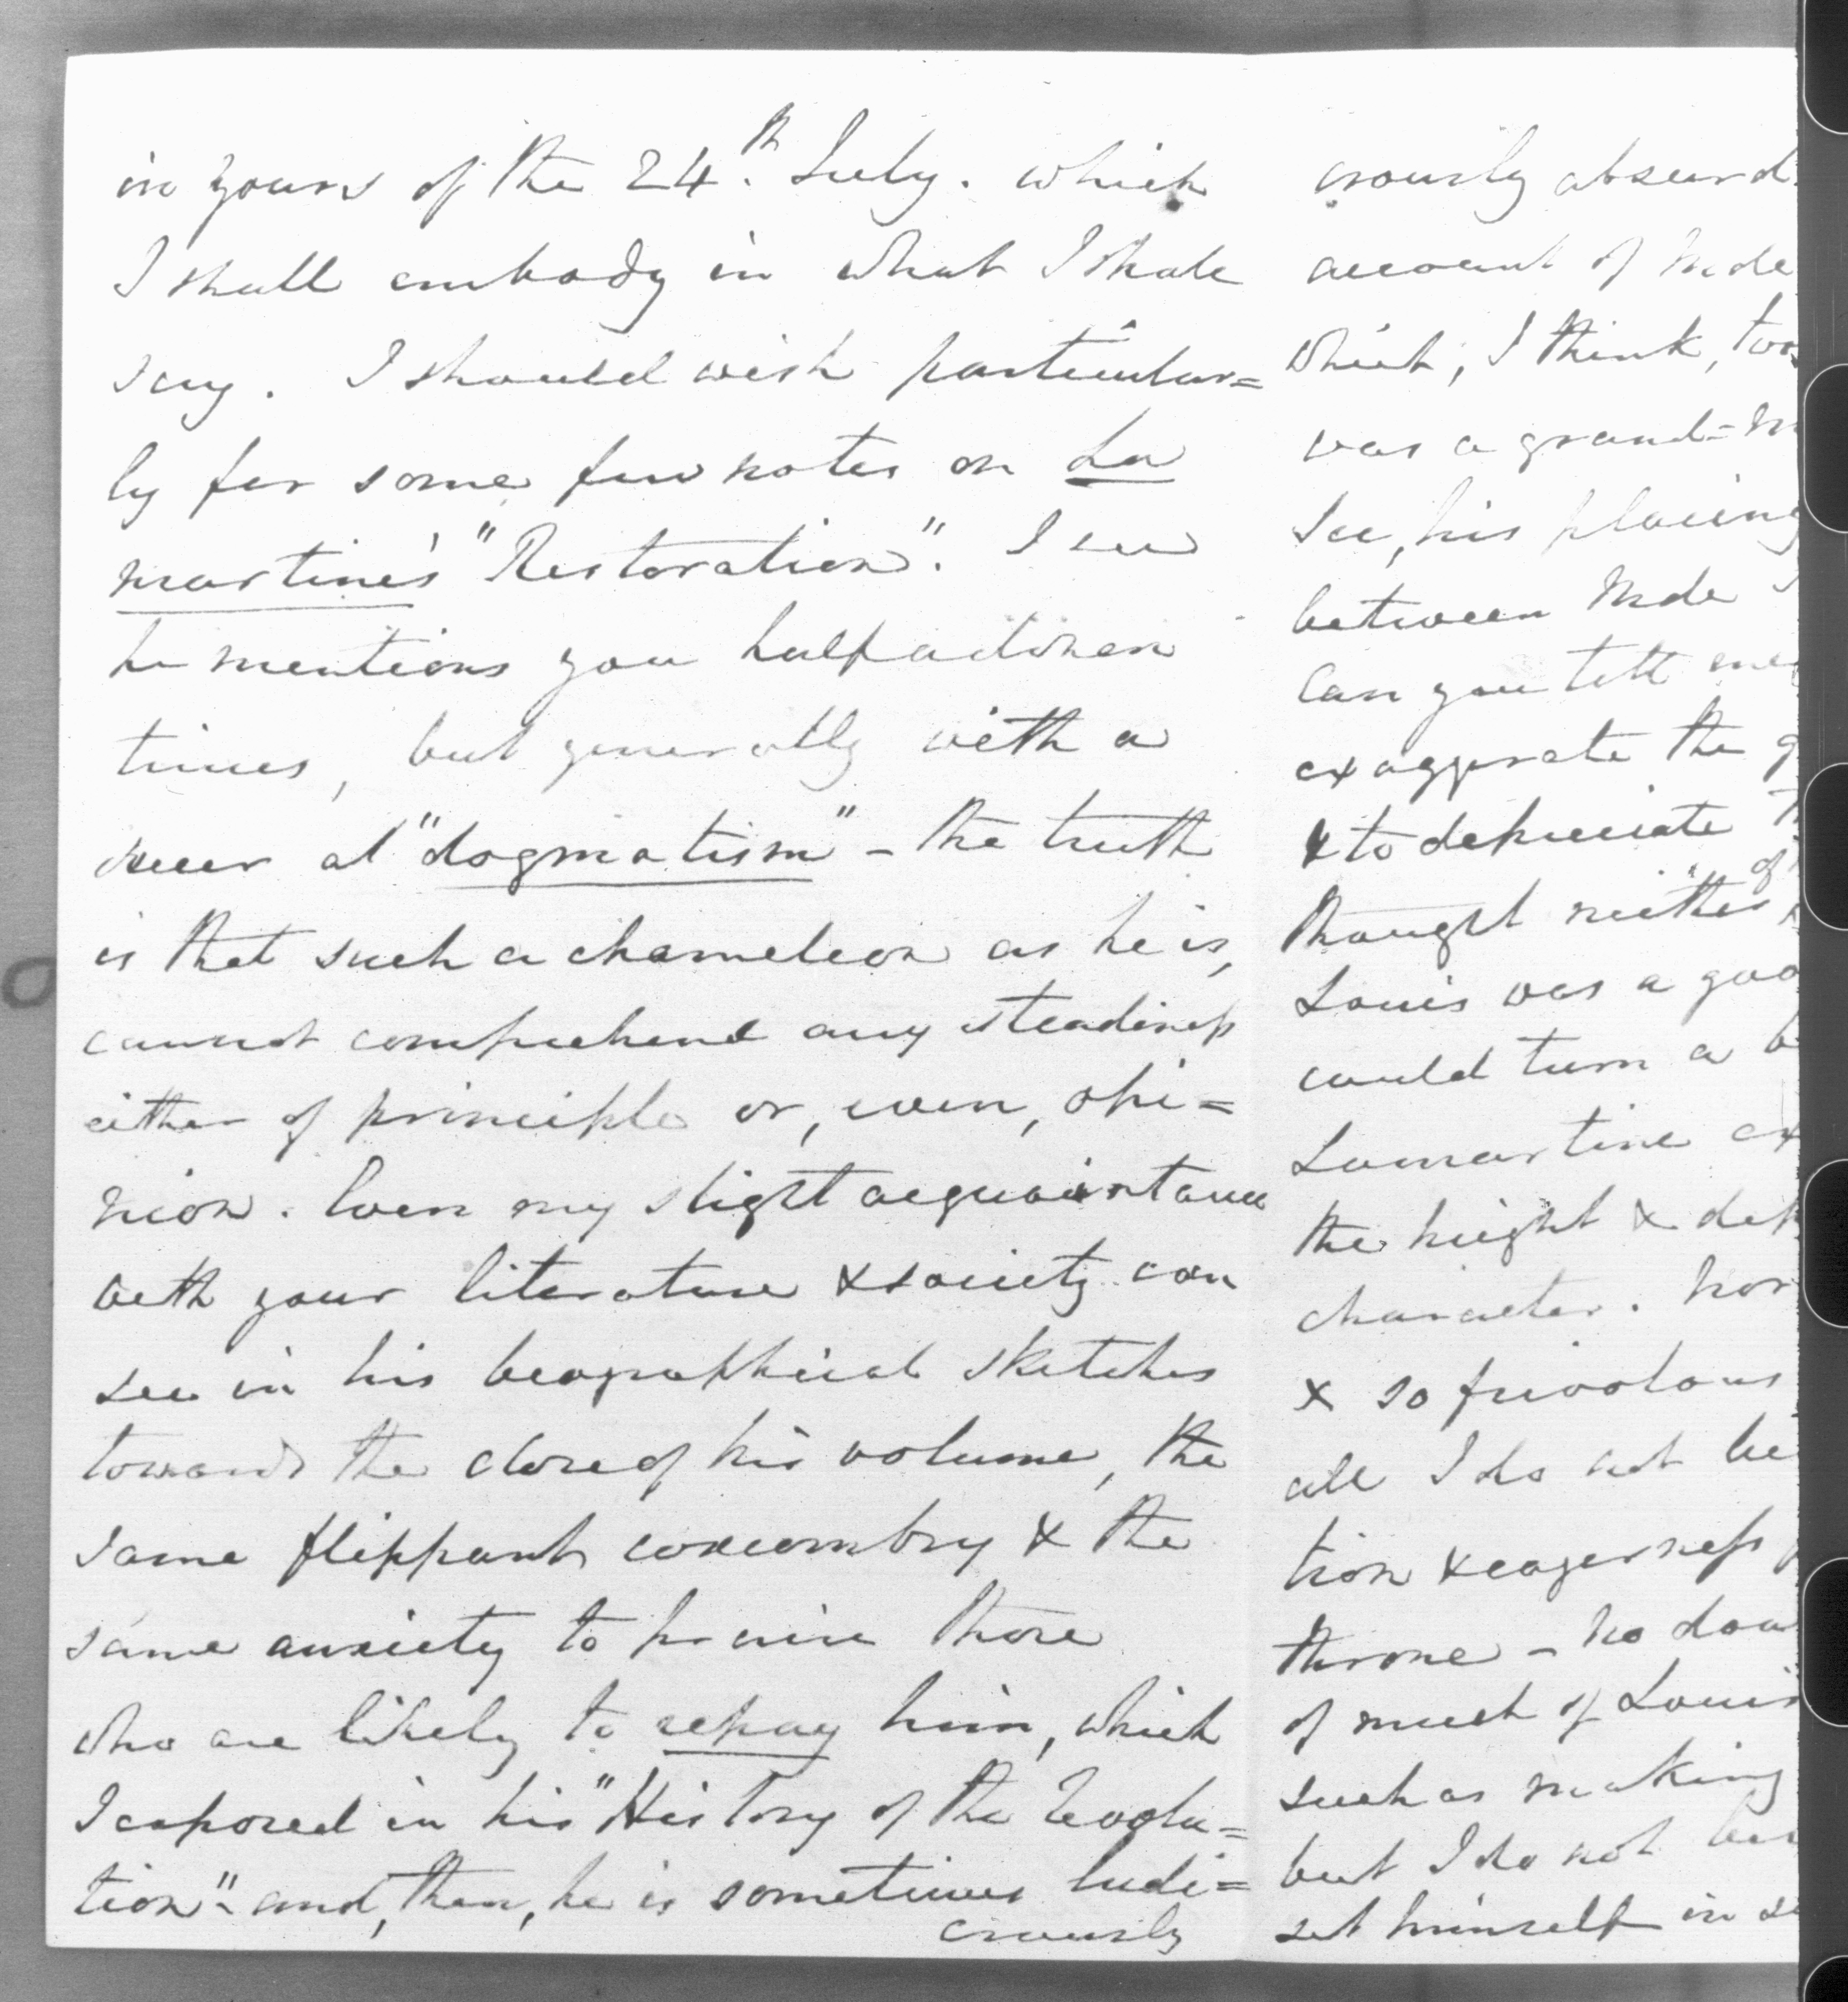 in yours of the 24.th July. which
I shall embody in what I shall
say. I should wish particular=
ly for some few notes on La
martine's "Restoration". I see
he mentions you half a dozen
times, but generally with a
sneer at "dogmatism" - the truth
is that such a chameleon as he is,
cannot comprehend any steadiness
either of principle or, even, opi=
nion. Even my slight acquaintance
with your literature & society can
see in his beographical sketches
towards the close of his volume, the
same flippant coxcombry & the
same anxiety to praise those
who are likely to repay him, which
I exposed in his "History of the Revolu=
tion" - and, then, he is sometimes ludi=
crously
crously absurd.
account of Mde
which, I think, too
was a grand=m
See, his placing
between Mde
Can you tell me
exaggerate the g
& to depreciate
thought neither of
Louis was a goo
could turn a b
Lamartine ex
the height & dep
character. Nor
& so frivolous
all I do not be
tion & eagerness
throne - No dou
of much of Louis
such as making
but I do not be
set himself in